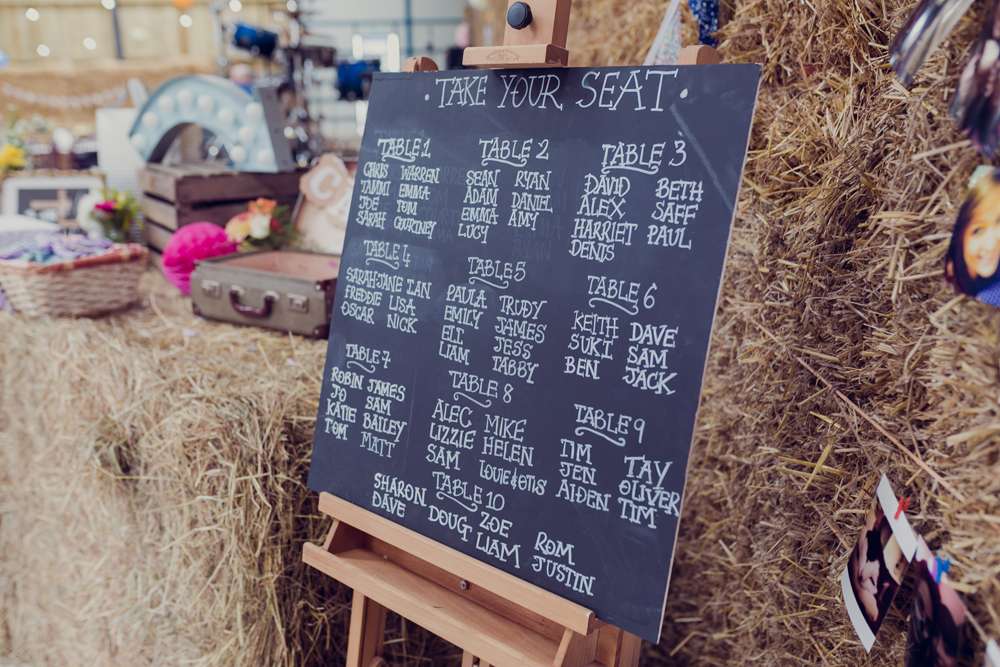 · TAKE YOUR SEAT ·
TABLE 1
CHRIS WARREN
TAMMI EMMA
JOE TOM
SARAH COURTNEY
TABLE 2
SEAN RYAN
ADAM DANIEL
EMMA AMY
LUCY
TABLE 3
DAVID BETH
ALEX SAFF
HARRIET PAUL
DENIS
TABLE 4
SARAHJANE IAN
FREDDIE LISA
OSCAR NICK
TABLE 5
PAULA TRUDY
EMILY JAMES
ELI JESS
LIAM TABBY
TABLE 6
KEITH DAVE
SUKI SAM
BEN JACK
TABLE 7
ROBIN JAMES
JO SAM
KATIE BAILEY
TOM MATT
TABLE 8
ALEC MIKE
LIZZIE HELEN
SAM LOUIE & OTIS
TABLE 9
TIM TAY
JEN OLIVER
AIDEN TIM
TABLE 10
SHARON DOUG ZOE ROM
DAVE LIAM JUSTIN